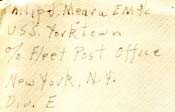 Philip J. Meara EM 3/c
U.S.S. Yorktown
c/o Fleet Post Office
New York, N.Y.
Div. E